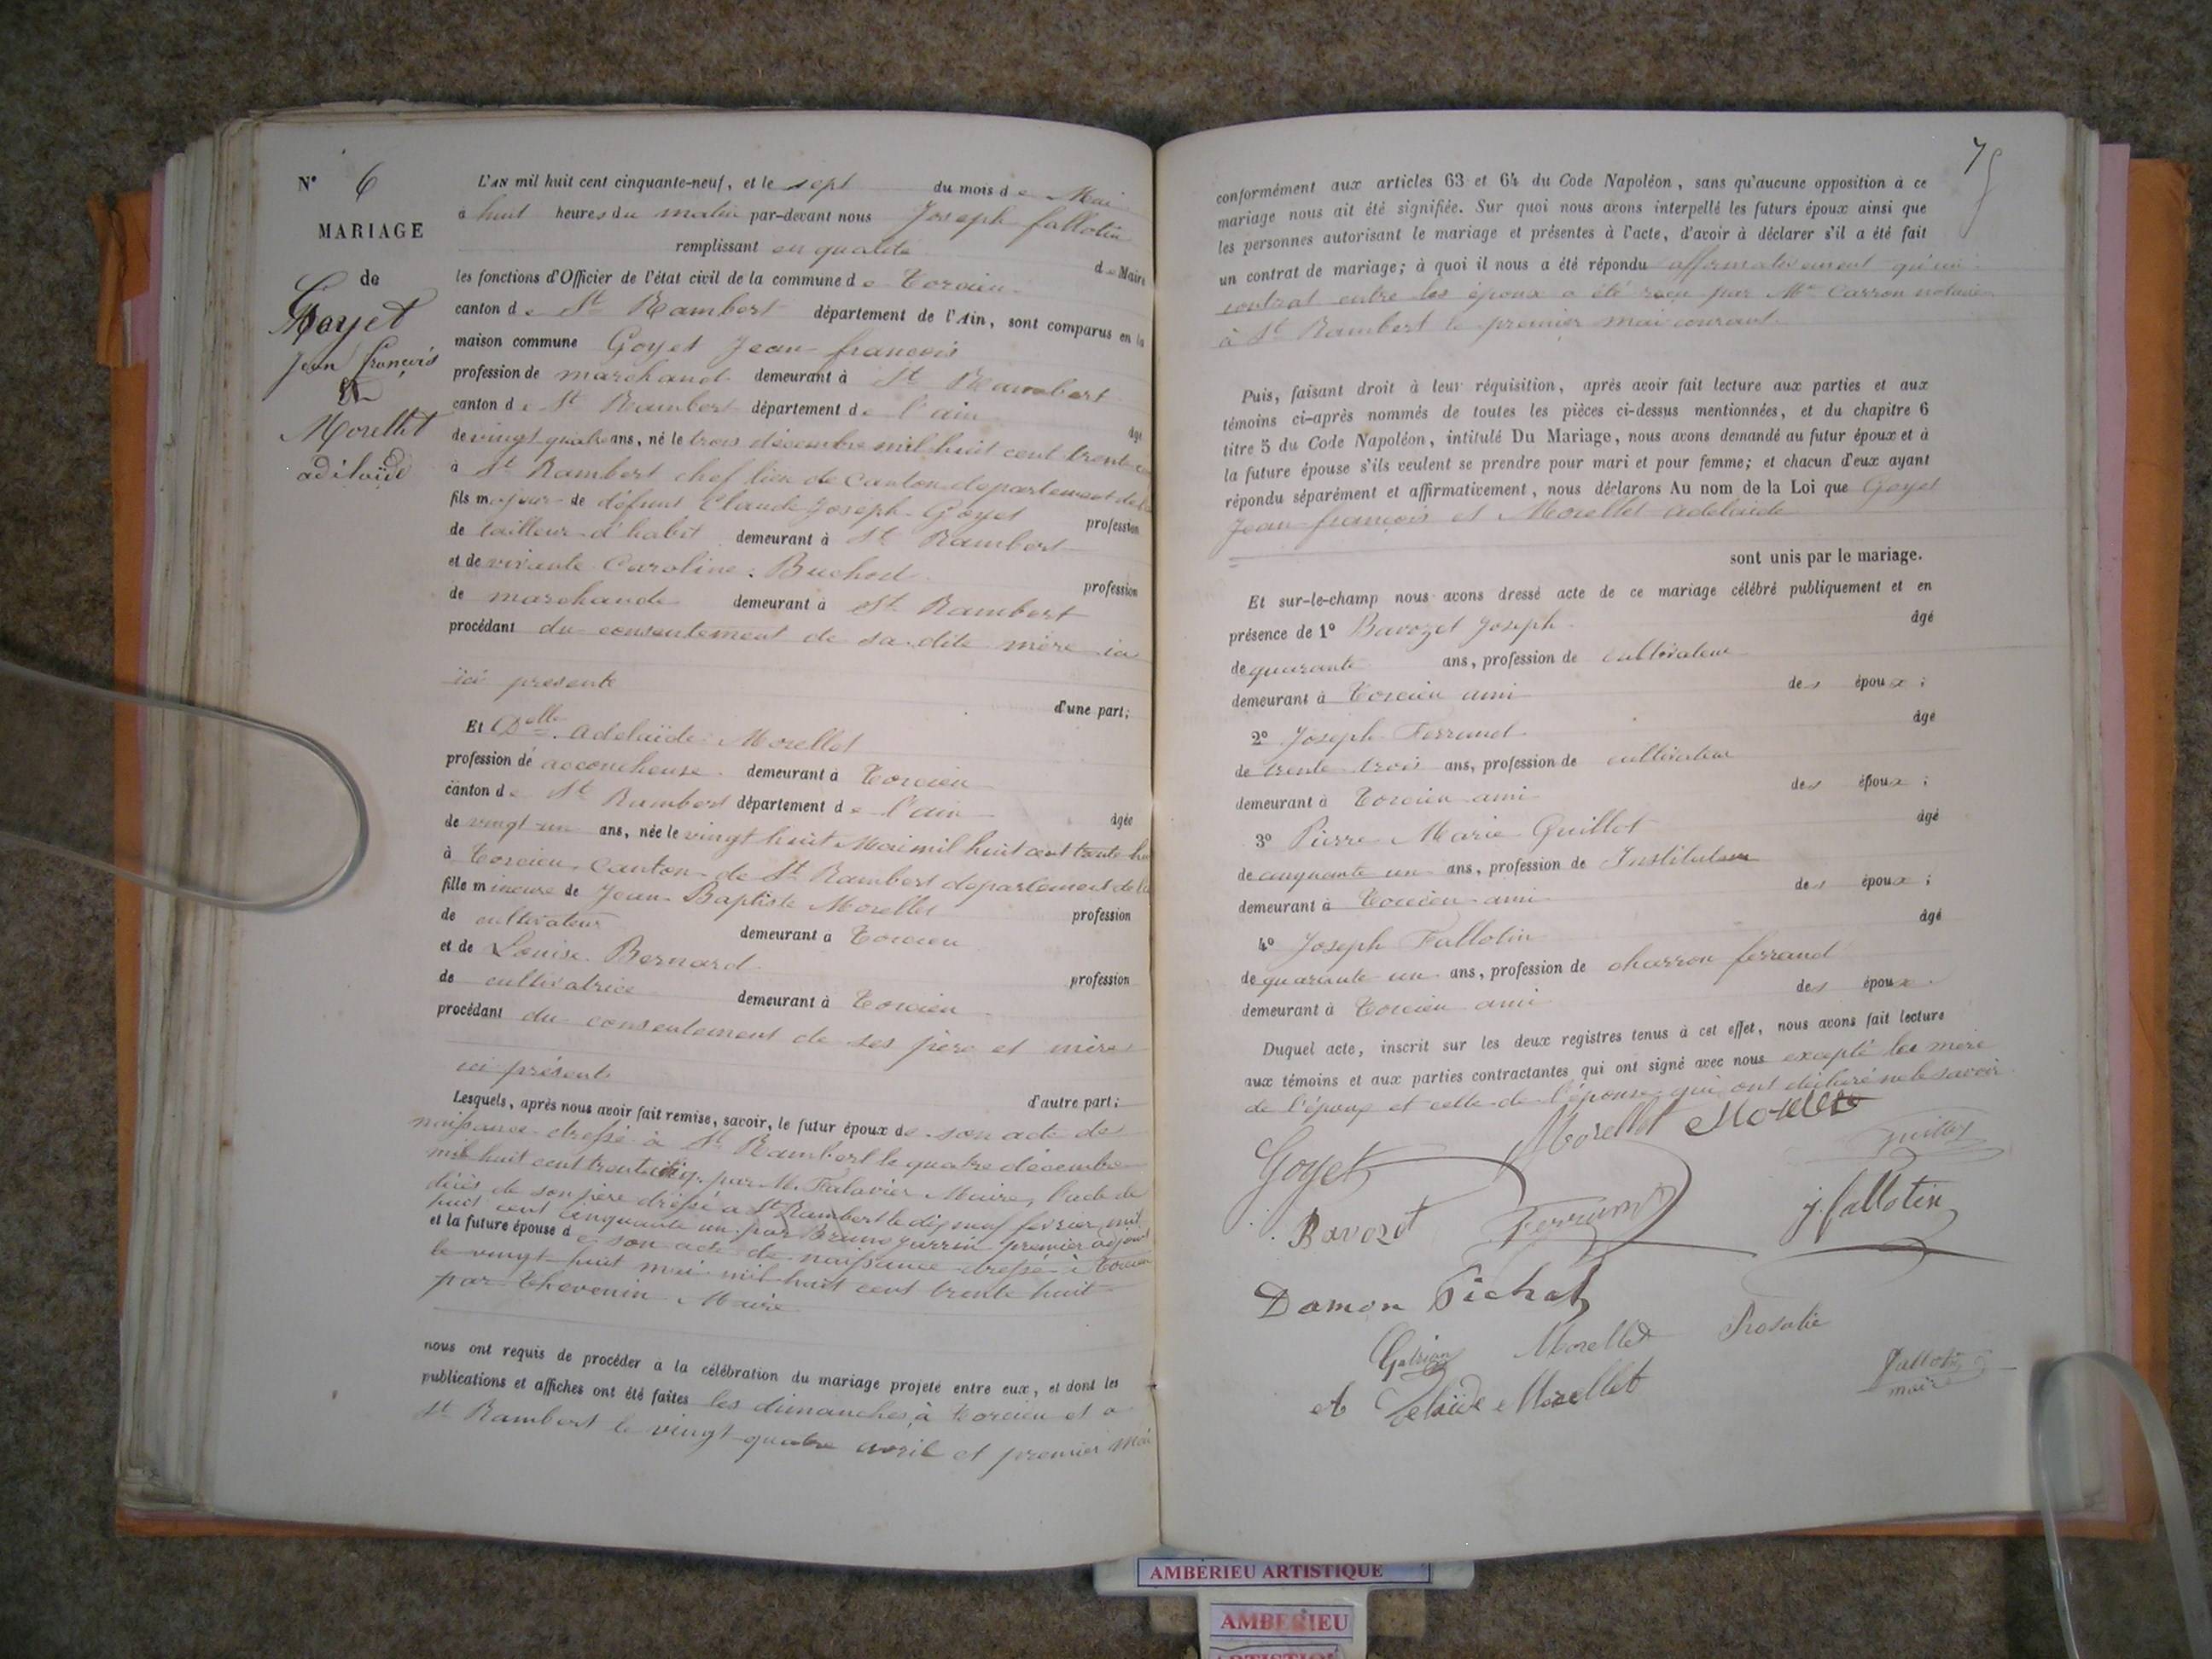 N° 6
MARIAGE
de
Goyet
Jean françois
&
Morellet
adélaïde
L'AN mil huit cent cinquante-neuf, et le sept du mois de Mai
à huit heures du matin par-devant nous Joseph fallotin
remplissant en qualité de Maire
les fonctions d'Officier de l'état civil de la commune de Torcieu
canton de St Rambert département de l'Ain, sont comparus en la
maison commune Goyet Jean-françois
profession de marchand demeurant à St Rambert
canton de St Rambert département de l'ain âgé
de vingt quatre ans, né le trois décembre mil huit cent trente
à St Rambert chef lieu de Canton département de
fils majeur de défunt Claude Joseph Goyet profession
de tailleur d'habit demeurant à St Rambert
et de vivante Caroline Buchod profession
de marchande demeurant à St Rambert
procédant du consentement de sa dite mère ici
ici présente
d'une part;
Et Delle adélaïde Morellet
profession de accoucheuse demeurant à Torcieu
canton de St Rambert département de l'ain âgée
de vingt un ans, née le vingt huit Mai mil huit cent trente
à Torcieu canton de St Rambert département de
fille mineure de Jean Baptiste Morellet profession
de cultivateur demeurant à Torcieu
et de Louise Bernard profession
de cultivatrice demeurant à Torcieu
procédant du consentement de ses père et mère
ici présents
d'autre part;
Lesquels, après nous avoir fait remise, savoir, le futur époux de son acte de
naissance dressé à St Rambert le quatre décembre
mil huit cent trente cinq par M. Falavier Maire, l'acte de
décès de son père dressé à St Rambert le dix neuf février mil
huit cent cinquante un par Bruno premier adjoint
et la future épouse de son acte de naissance dressé à Torcieu
le vingt huit mai mil huit cent trente huit
par Thevenin Maire
nous ont requis de procéder à la célébration du mariage projeté entre eux, et dont les
publications et affiches ont été faites les dimanches à Torcieu et à
St Rambert le vingt quatre avril et premier mai
75
conformément aux articles 63 et 64 du Code Napoléon, sans qu'aucune opposition à ce
mariage nous ait été signifiée. Sur quoi nous avons interpellé les futurs époux ainsi que
les personnes autorisant le mariage et présentes à l'acte, d'avoir à déclarer s'il a été fait
un contrat de mariage; à quoi il nous a été répondu affirmativement qu'un
contrat entre les époux a été reçu par Me Carron notaire
à St Rambert le premier mai courant
Puis, faisant droit à leur réquisition, après avoir fait lecture aux parties et aux
témoins ci-après nommés de toutes les pièces ci-dessus mentionnées, et du chapitre 6
titre 5 du Code Napoléon, intitulé Du Mariage, nous avons demandé au futur époux et à
la future épouse s'ils veulent se prendre pour mari et pour femme; et chacun d'eux ayant
répondu séparément et affirmativement, nous déclarons Au nom de la Loi que Goyet
Jean-françois et Morellet adélaïde
sont unis par le mariage.
Et sur-le-champ nous avons dressé acte de ce mariage célébré publiquement et en
présence de 1° Bavozet Joseph âgé
de quarante ans, profession de cultivateur
demeurant à Torcieu ami des époux;
2° Joseph Ferrand âgé
de trente trois ans, profession de cultivateur
demeurant à Torcieu ami des époux;
3° Pierre Marie Guillot âgé
de cinquante un ans, profession de Instituteur
demeurant à Torcieu ami des époux;
4° Joseph Fallotin âgé
de quarante un ans, profession de charron ferrand
demeurant à Torcieu ami des époux.
Duquel acte, inscrit sur les deux registres tenus à cet effet, nous avons fait lecture
aux témoins et aux parties contractantes qui ont signé avec nous excepté la mère
de l'époux et celle de l'épouse qui ont déclaré ne le savoir
Goyet Morellet Morellet Guillot
Bavozet Ferrand j. fallotin
Damon Pichat
Morellet Rosalie
Adelaïde Morellet
Fallotin
maire
AMBERIEU ARTISTIQUE
AMBERIEU
ARTISTIQUE